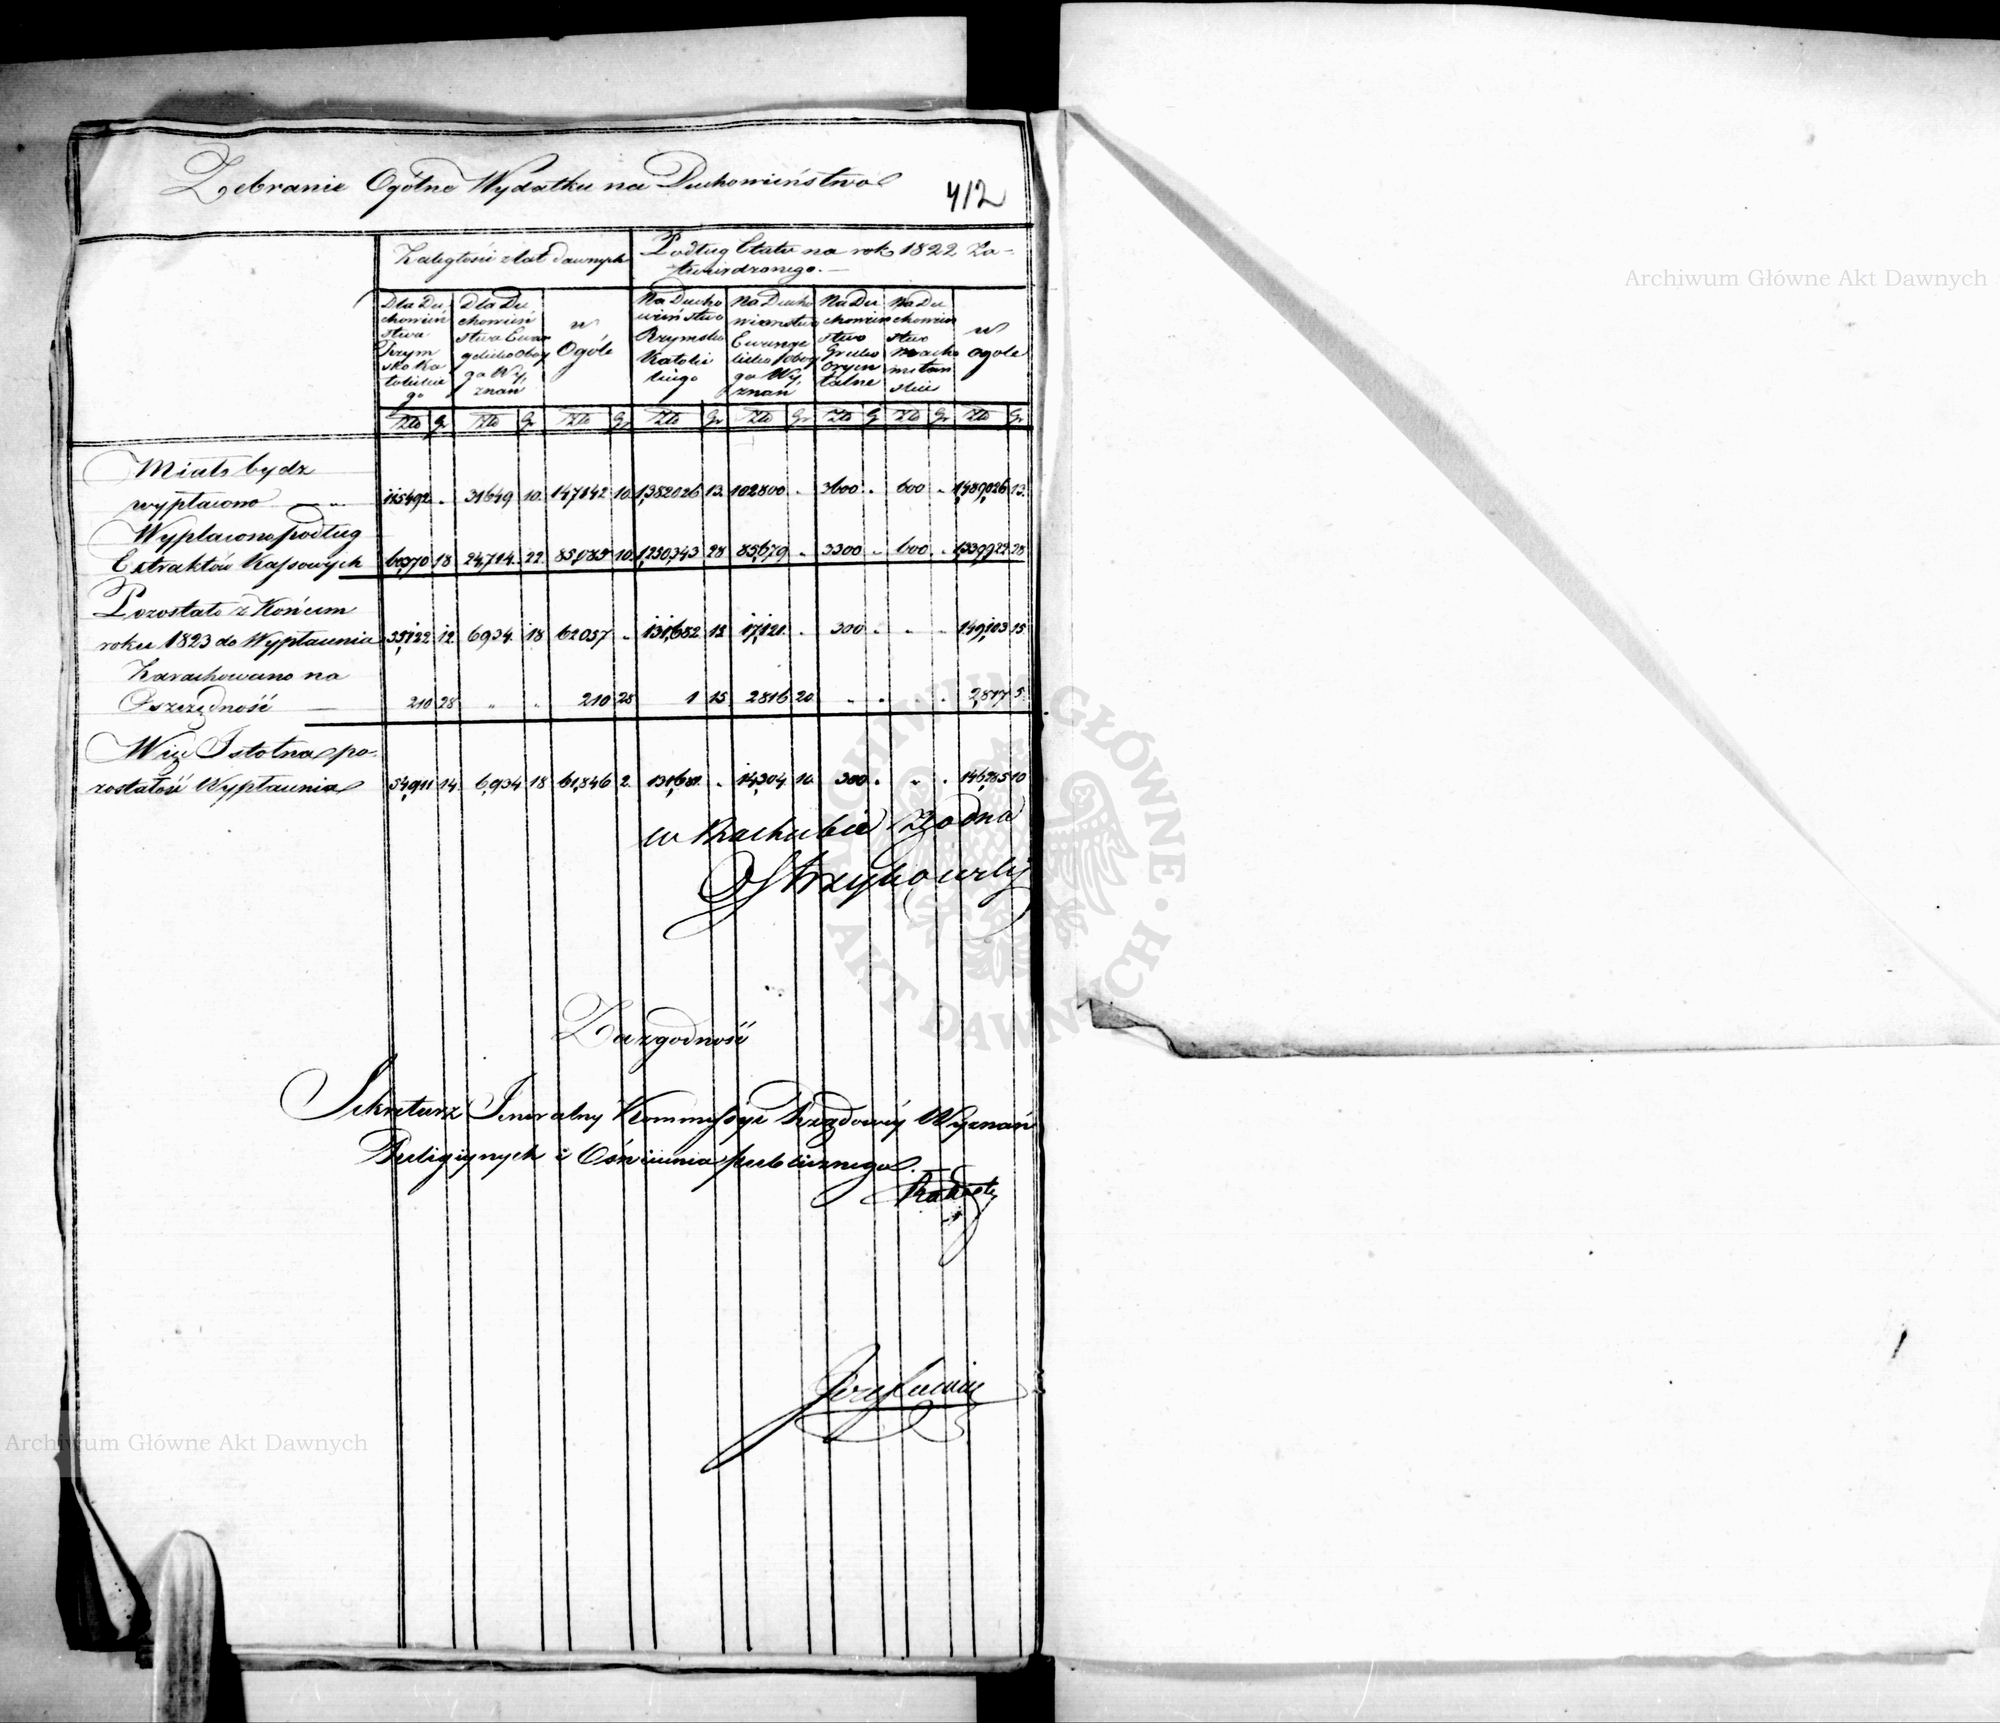 Zebranie Ogólne Wydatku na Duchowieństwo
412
Zaległości z lat dawnych
Podług Etatu na rok 1822 za-
twierdzonego.
Dla Du
chowień
stwa
Rzym
sko Ka
tolickie
go
Dla Du
chowień
stwa Ewan
gielicko Oboy
ga Wy
znań
w
Ogóle
Na Ducho
wieństwo
Rzymsko
Katolic
kiego
Na Ducho
wieństwo
Ewange
licko Oboy
ga Wy
znań
Na Du
chowień
stwo
Grecko
Oryen
talne
Na Du
chowień
stwo
Macho
metań
skie
w
ogóle
Zło Gr Zło Gr Zło Gr Zło Gr Zło Gr Zło G Zło Gr Zło Gr
Miało bydź
wypłacono 115492 . 31649 10. 147142 10. 1,382026 13. 102800 . 3600 . 600 . 1,489,026 13.
Wypłacono podług
Extraktów Kassowych 60370 18 24,714. 22. 85,085 10. 1,250,343 28 85,679 . 3300 . 600 . 1,339,922 28
Pozostało z końcem
roku 1823 do Wypłacenia 55,122 12 6934. 18 62057 . 131,682 15 17,121. . 300 . . . 149,103 15
Zarachowano na
Oszczędność 210 28 . . 210 28 1 15 2816 20 . . . . 2,817 5.
Więc Istotna po-
zostałość Wypłacenia 54,911 14. 6,934 18 61,846 2. 131,681. . 14,304 10. 300 . . . 146,285 10
w Rachubie Zgodno
Za zgodność
Sekretarz Jeneralny Kommissyi Rządowéy Wyznań
Religiynych i Oświecenia publicznego.
Archiwum Główne Akt Dawnych
Archiwum Główne Akt Dawnych
ARCHIWUM GŁÓWNE AKT DAWNYCH